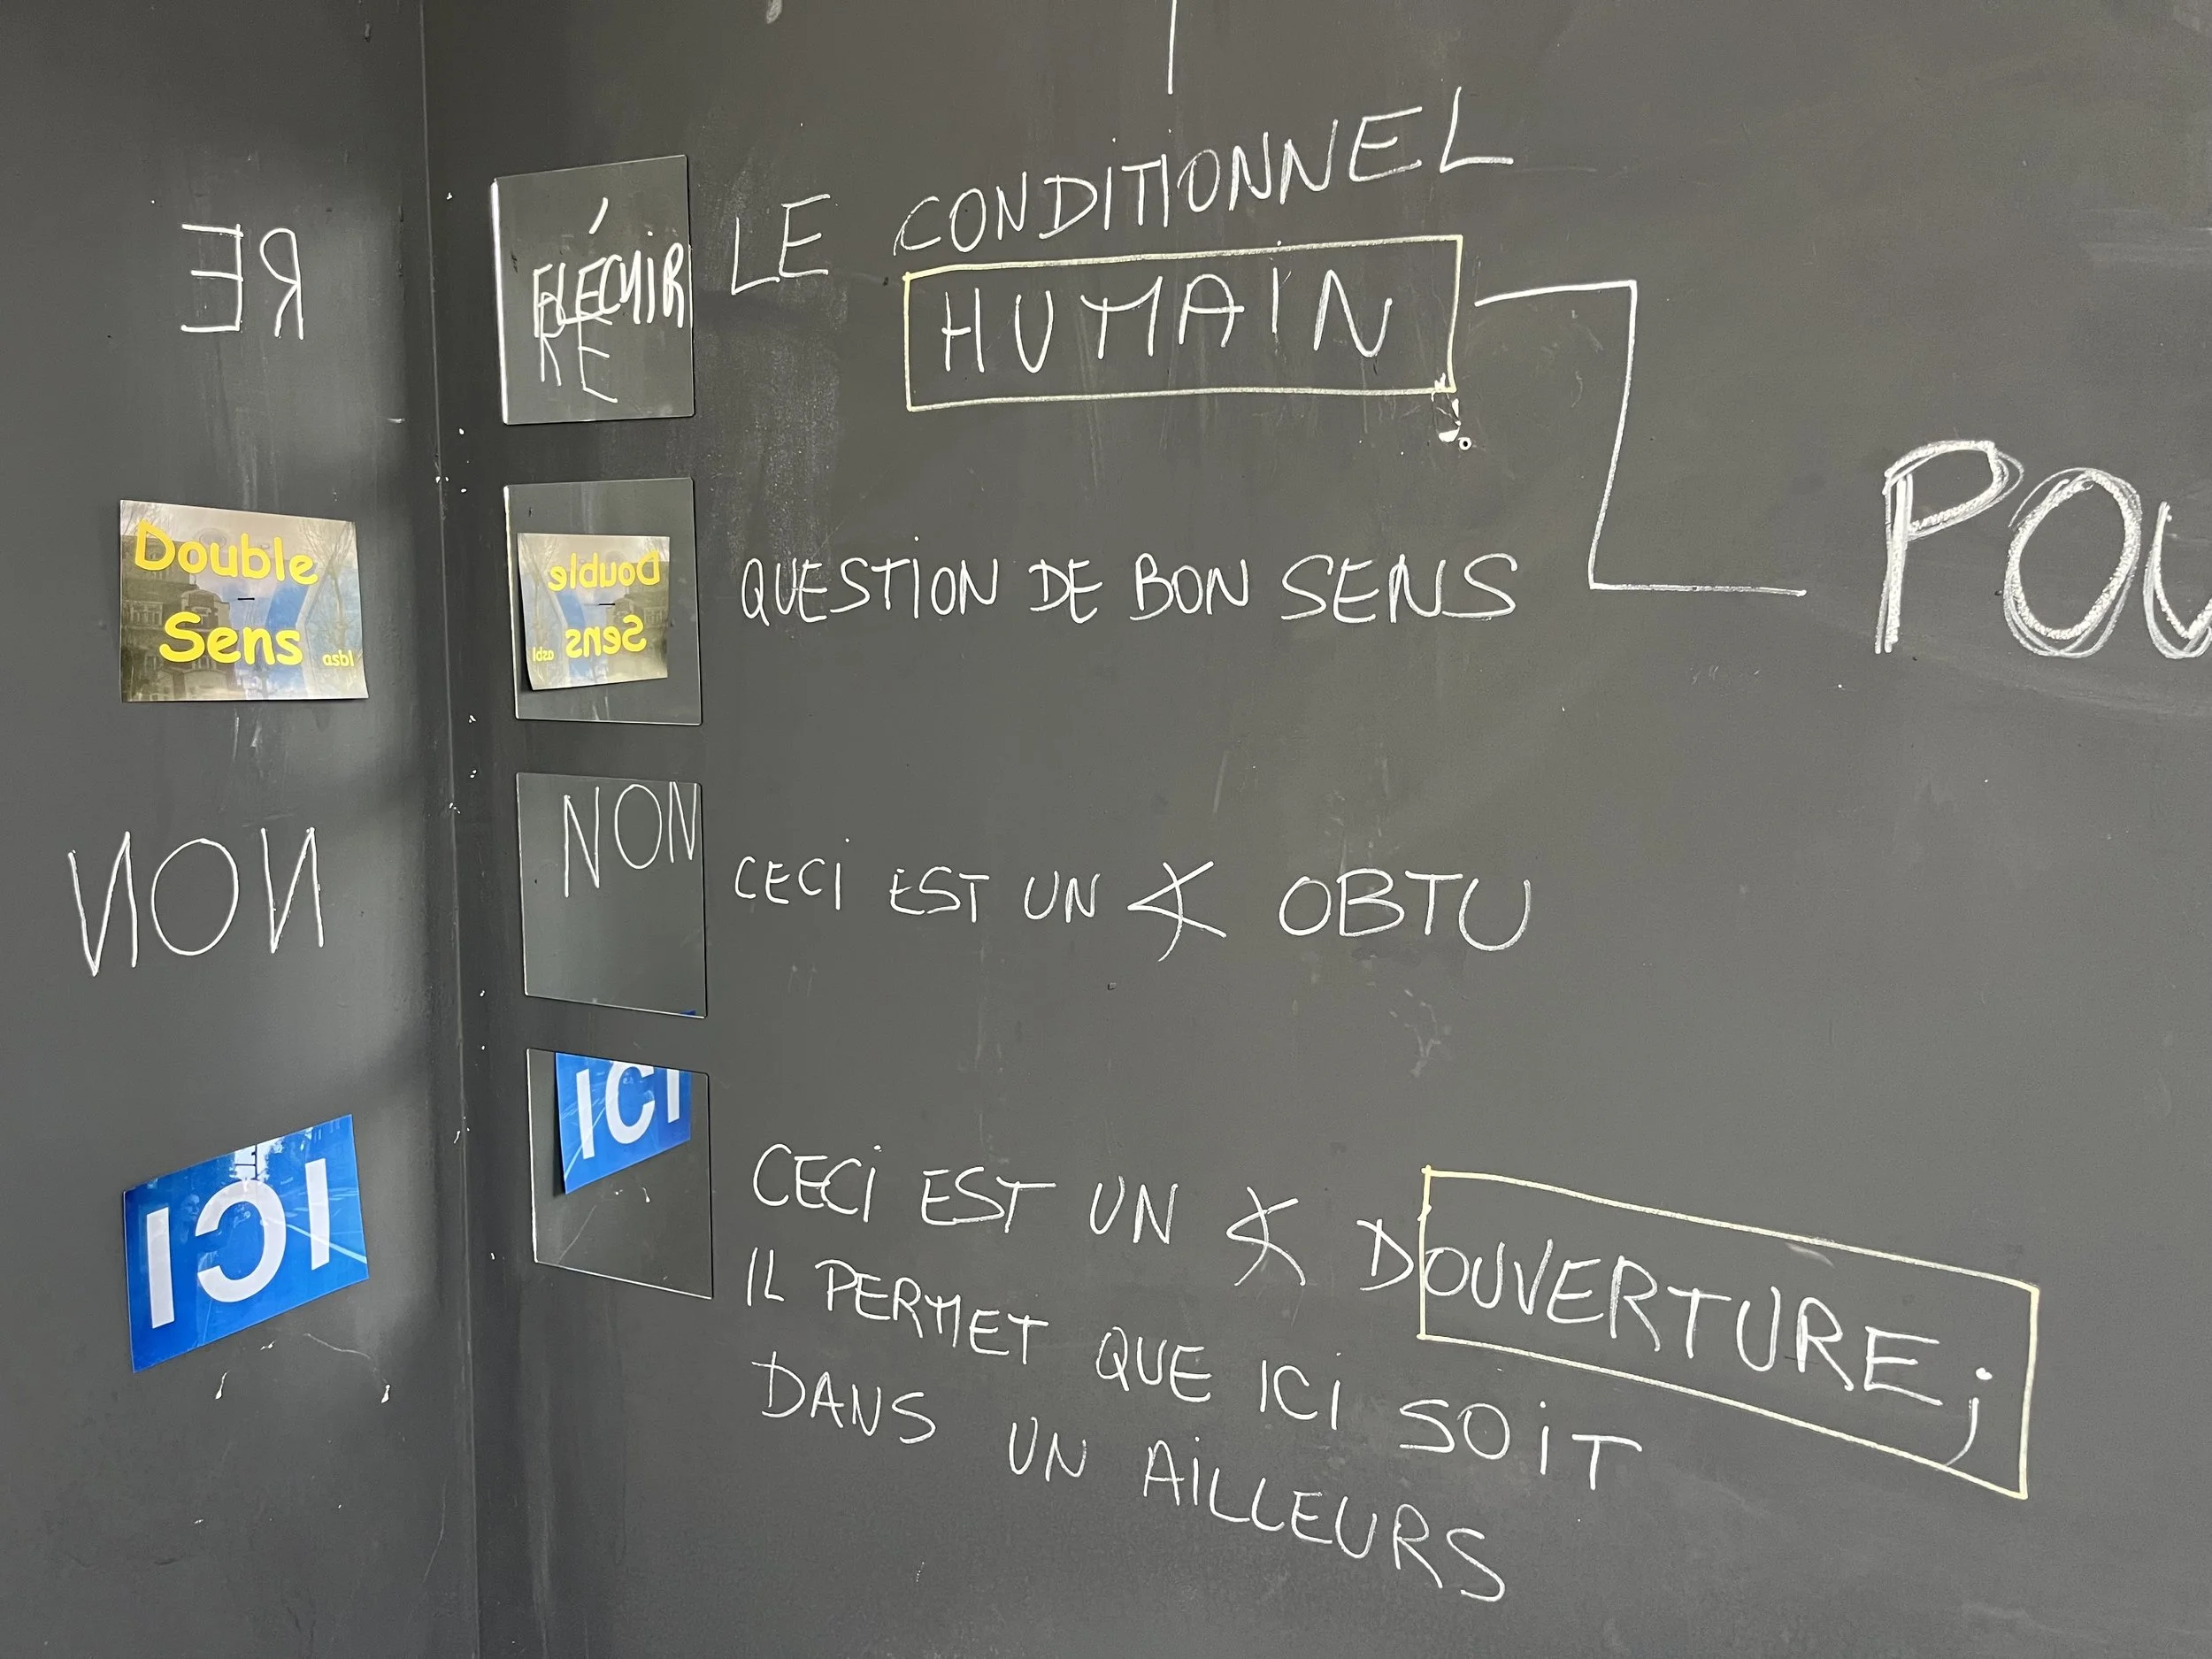 RE
FLÉCHIR
RE
LE CONDITIONNEL
HUMAIN
POU
Double
Sens
asbl
Double
Sens
asbl
QUESTION DE BON SENS
NON
NON
CECI EST UN ∢ OBTU
ICI
ICI
CECI EST UN ∢ DOUVERTURE;
IL PERMET QUE ICI SOIT
DANS UN AILLEURS